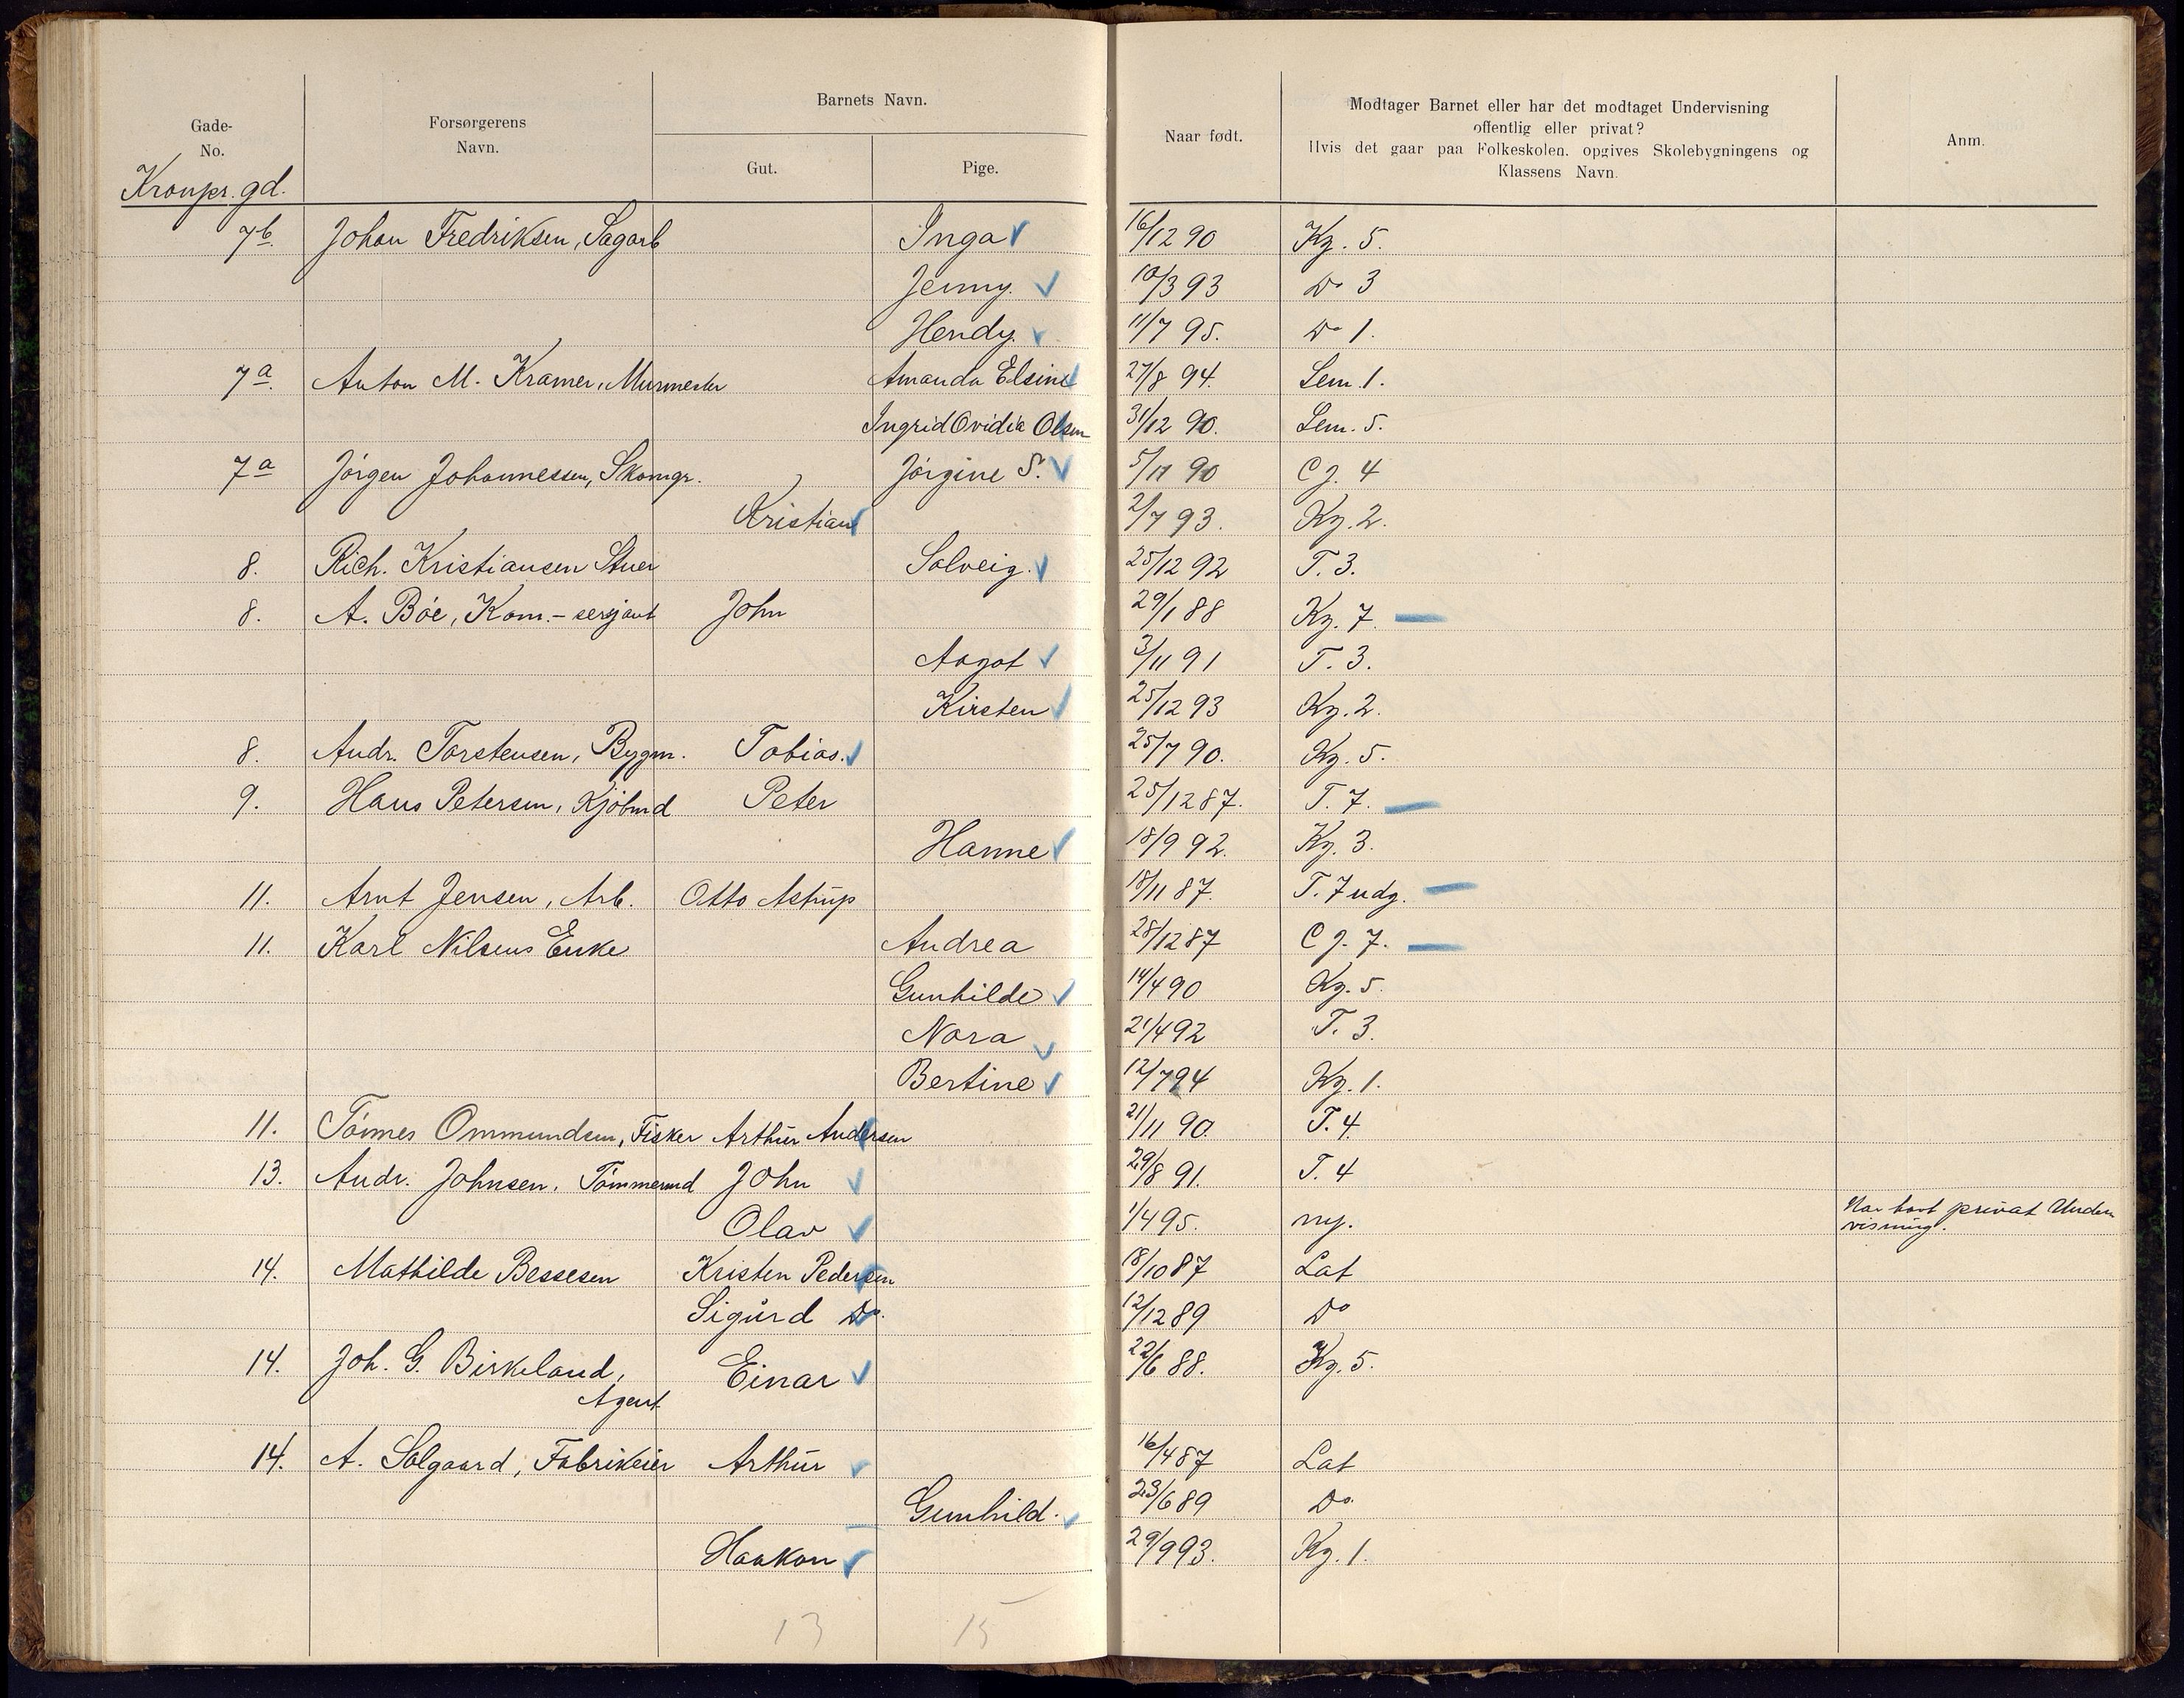 Gade-
No.
Forsørgerens
Navn.
Barnets Navn.
Gut.
Pige.
Naar født.
Modtager Barnet eller har det modtaget Undervisning
offentlig eller privat?
Hvis det gaar paa Folkeskolen, opgives Skolebygningens og
Klassens Navn.
Anm.
Kronpr. gd.
7b. Johan Fredriksen, Sagarb Inga 16/12 90 Kg. 5.
Jenny. 10/3 93 Do 3
Hendy. 11/7 95. Do 1.
7a. Anton M. Kramer, Murmester Amanda Elsine 27/8 94. Sem. 1.
Ingrid Ovidia Olsen 31/12 90. Sem. 5.
7a Jörgen Johannessen, Skomgr. Jörgine S. 5/11 90 C j. 4
Kristian 2/7 93. Kg. 2.
8. Rich. Kristiansen Stuer Solveig. 25/12 92 T. 3.
8. A. Böe, Kom.-sersjant John 29/1 88 Kg. 7.
Aagot 3/11 91 T. 3.
Kirsten 25/12 93 Kg. 2.
8. Andr. Torstensen, Bygm. Tobias. 25/7 90. Kg. 5.
9. Hans Petersen, Kjöbmd Peter 25/12 87. T. 7.
Hanne 18/9 92. Kg. 3.
11. Arnt Jensen, Arb. Otto Astrup 18/11 87. T. 7 udg.
11. Karl Nilsens Enke Andrea 28/12 87 C j. 7.
Gunhilde 14/4 90 Kg. 5.
Nora 21/4 92 T. 3.
Bertine 12/7 94 Kg. 1.
11. Tönnes Ommundsen, Fisker Arthur Andersen 21/11 90. T. 4.
13. Andr. Johnsen, Tömmermd John 29/8 91. T. 4
Olav 1/4 95. ny. Har havt privat Under
visning.
14. Mathilde Bessesen Kristen Pedersen 18/10 87 Lat
Sigurd Do. 12/12 89 Do
14. Joh. G. Birkeland, Einar 22/6 88. Kg. 5.
Agent
14. A. Solgaard, Fabrikeier Arthur 16/4 87 Lat
Gunhild. 23/6 89 Do.
Haakon 29/9 93. Kg. 1.
13 15